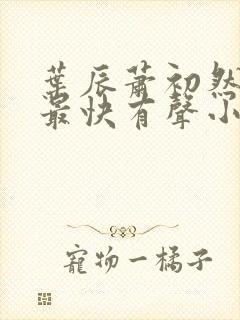 葉辰蕭初然
最快有聲小
寵物一橘子